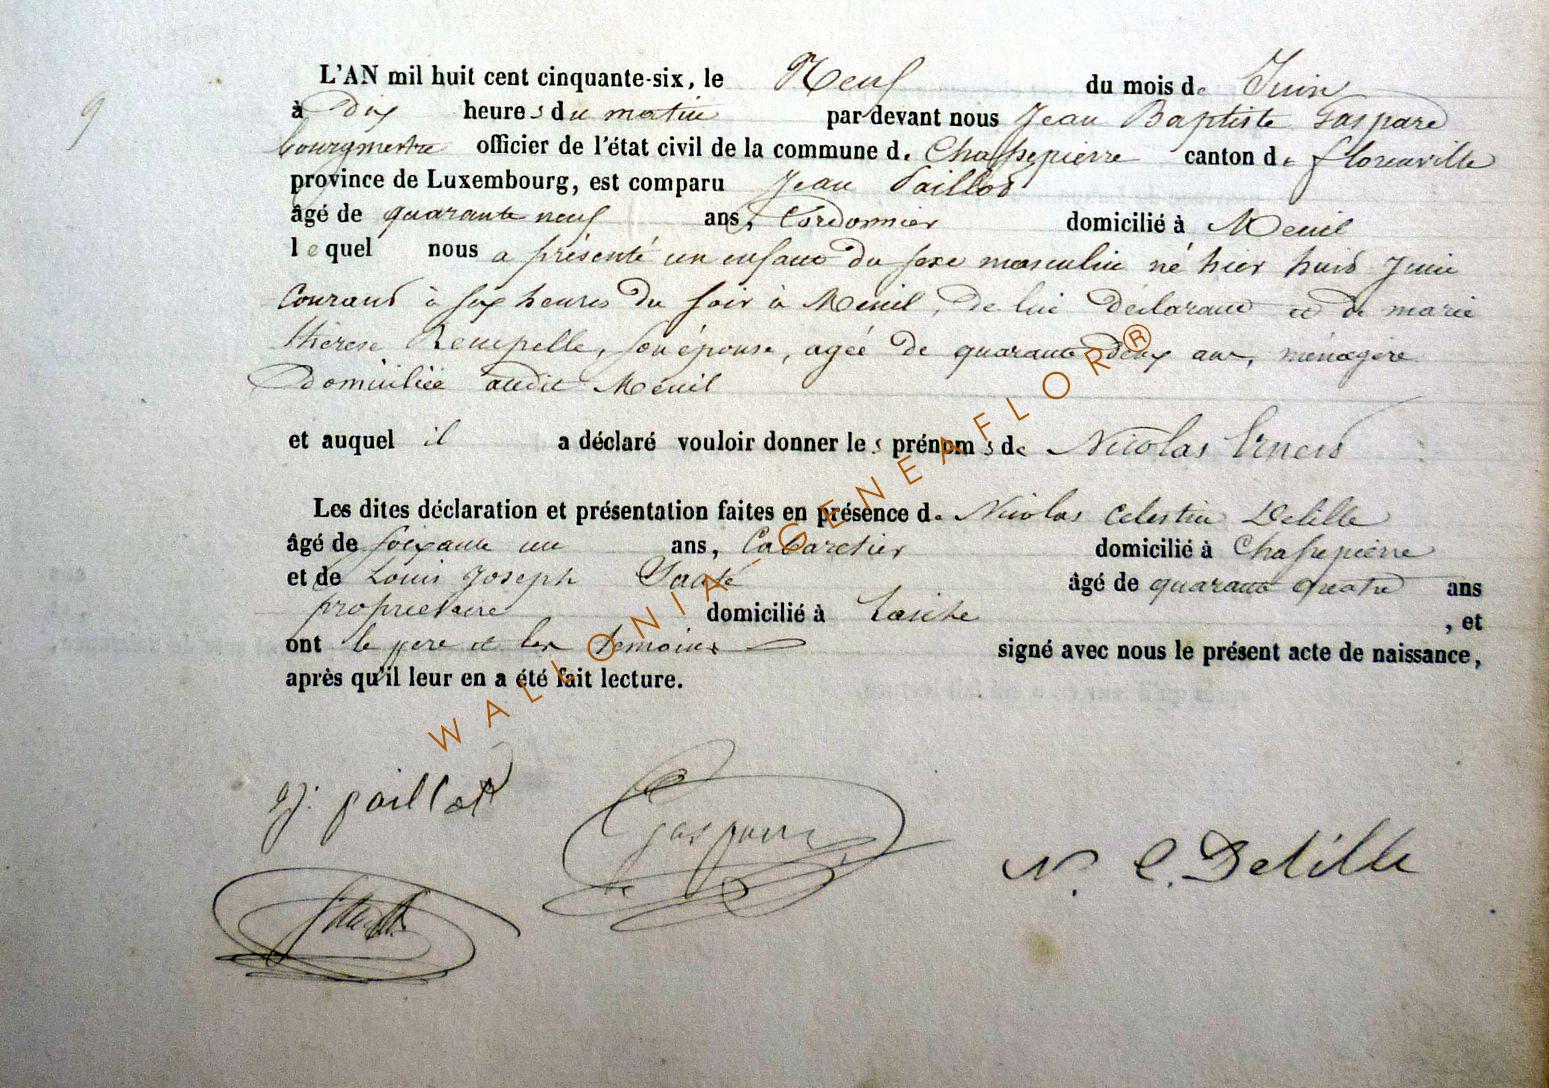 9
L'AN mil huit cent cinquante-six, le Neuf du mois de Juin
à Dix heures du matin par devant nous Jean Baptiste Gaspard
bourgmestre officier de l'état civil de la commune de Chassepierre canton de florenville
province de Luxembourg, est comparu Jean Paillot
âgé de quarante neuf ans, Cordonnier domicilié à Menil
lequel nous a présenté un enfant du sexe masculin né hier huit Juin
Courant à six heures du soir à Menil, de lui déclarant et de marie
thérèse son épouse, agée de quarante deux ans, ménagère
domiciliée audit Menil
et auquel il a déclaré vouloir donner les prénoms de Nicolas Ernest
Les dites déclaration et présentation faites en présence de Nicolas Celestin Delille
âgé de soixante un ans, Cabaretier domicilié à Chassepierre
et de Louis Joseph âgé de quarante quatre ans
propriétaire domicilié à Laiche , et
ont le père et les témoins signé avec nous le présent acte de naissance,
après qu'il leur en a été fait lecture.
WALLONIA-GENEAFLOR®
J. paillot
Gaspard
N. C. Delille